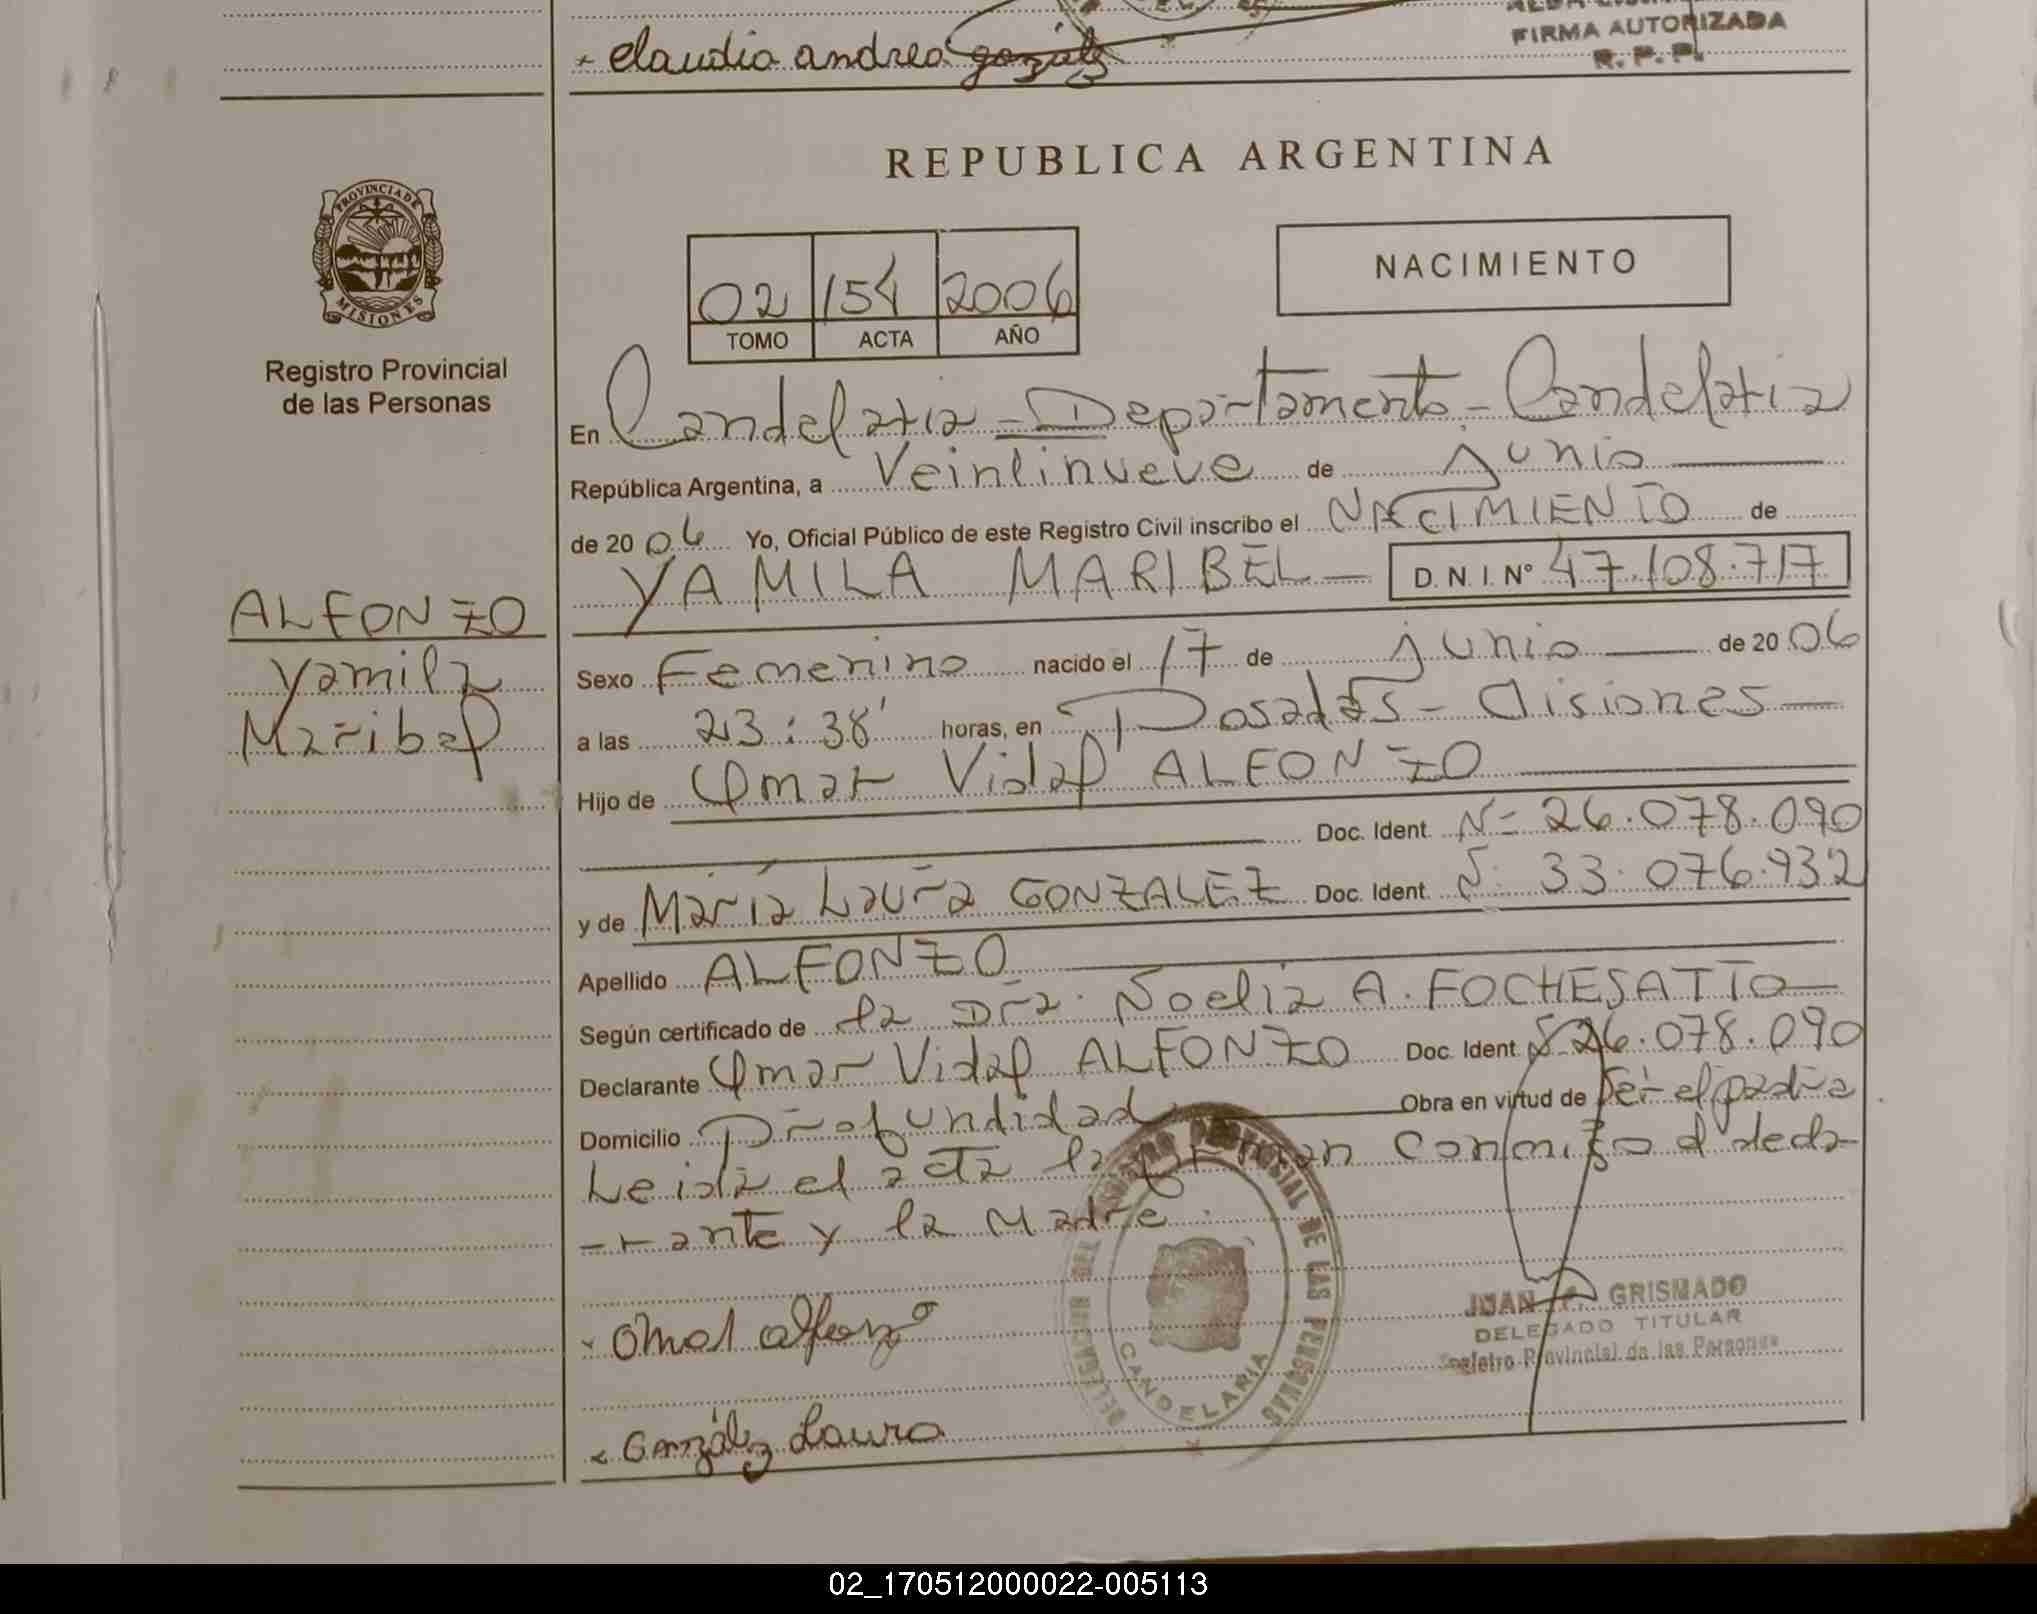 claudia andrea gonzález
FIRMA AUTORIZADA
R. P. P.
PROVINCIA DE
MISIONES
Registro Provincial
de las Personas
ALFONZO
Yamila
Maribel
REPUBLICA ARGENTINA
02 154 2006
TOMO ACTA AÑO
NACIMIENTO
En Candelaria - Departamento - Candelaria
República Argentina, a Veintinueve de junio
de 20 06 Yo, Oficial Público de este Registro Civil inscribo el NACIMIENTO de
YAMILA MARIBEL — D. N. I. Nº 47.108.717
Sexo Femenino nacido el 17 de junio de 20 06
a las 23:38' horas, en Posadas - Misiones —
Hijo de Omar Vidal ALFONZO
Doc. Ident. Nº 26.078.090
y de María Laura GONZALEZ Doc. Ident. Nº 33.076.932
Apellido ALFONZO
Según certificado de la Dra. Noelia A. FOCHESATTO
Declarante Omar Vidal ALFONZO Doc. Ident. Nº 26.078.090
Domicilio Profundidad Obra en virtud de Ser el padre
Leida el acta la firman conmigo el decla-
-rante y la Madre.
Omar alfonzo
González Laura
REGISTRO PROVINCIAL DE LAS PERSONAS
CANDELARIA
JUAN GRISMADO
DELEGADO TITULAR
Registro Provincial de las Personas
02_170512000022-005113